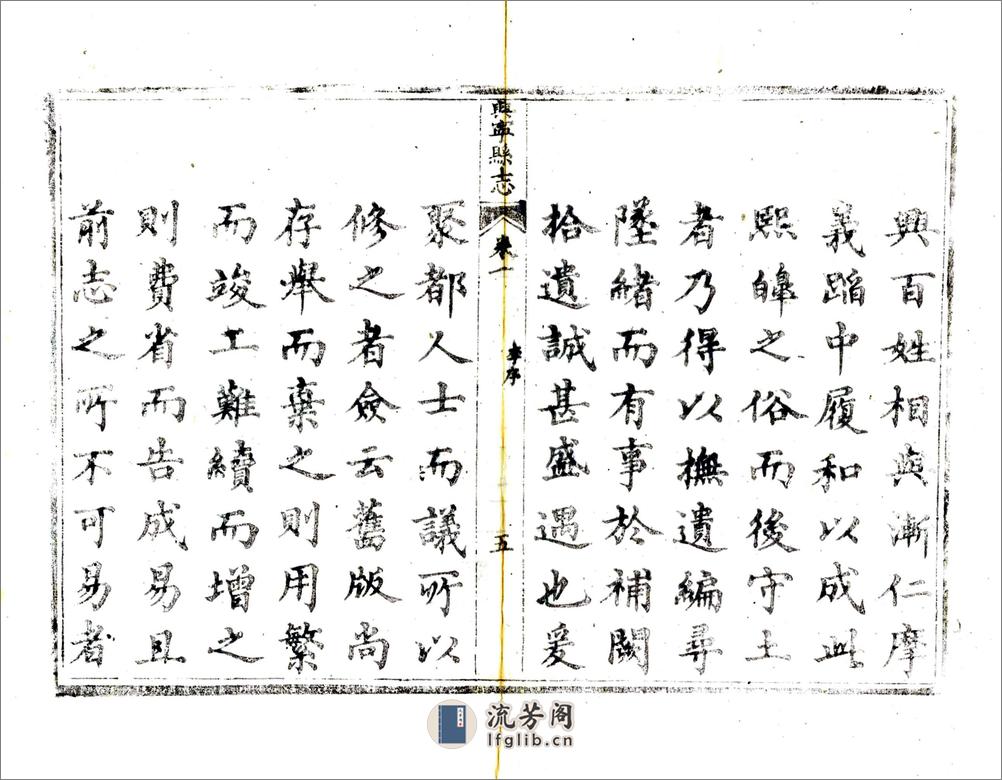 興百姓相與漸仁摩
義蹈中履和以成此
熙皞之俗而後守土
者乃得以撫遺編尋
墜緒而有事於補闕
拾遺誠甚盛遇也爰
興寧縣志
卷一
序
五
聚都人士而議所以
修之者僉云舊版尚
存舉而棄之則用繁
而竣工難續而增之
則費省而告成易且
前志之所不可易者
流芳阁
lfglib.cn